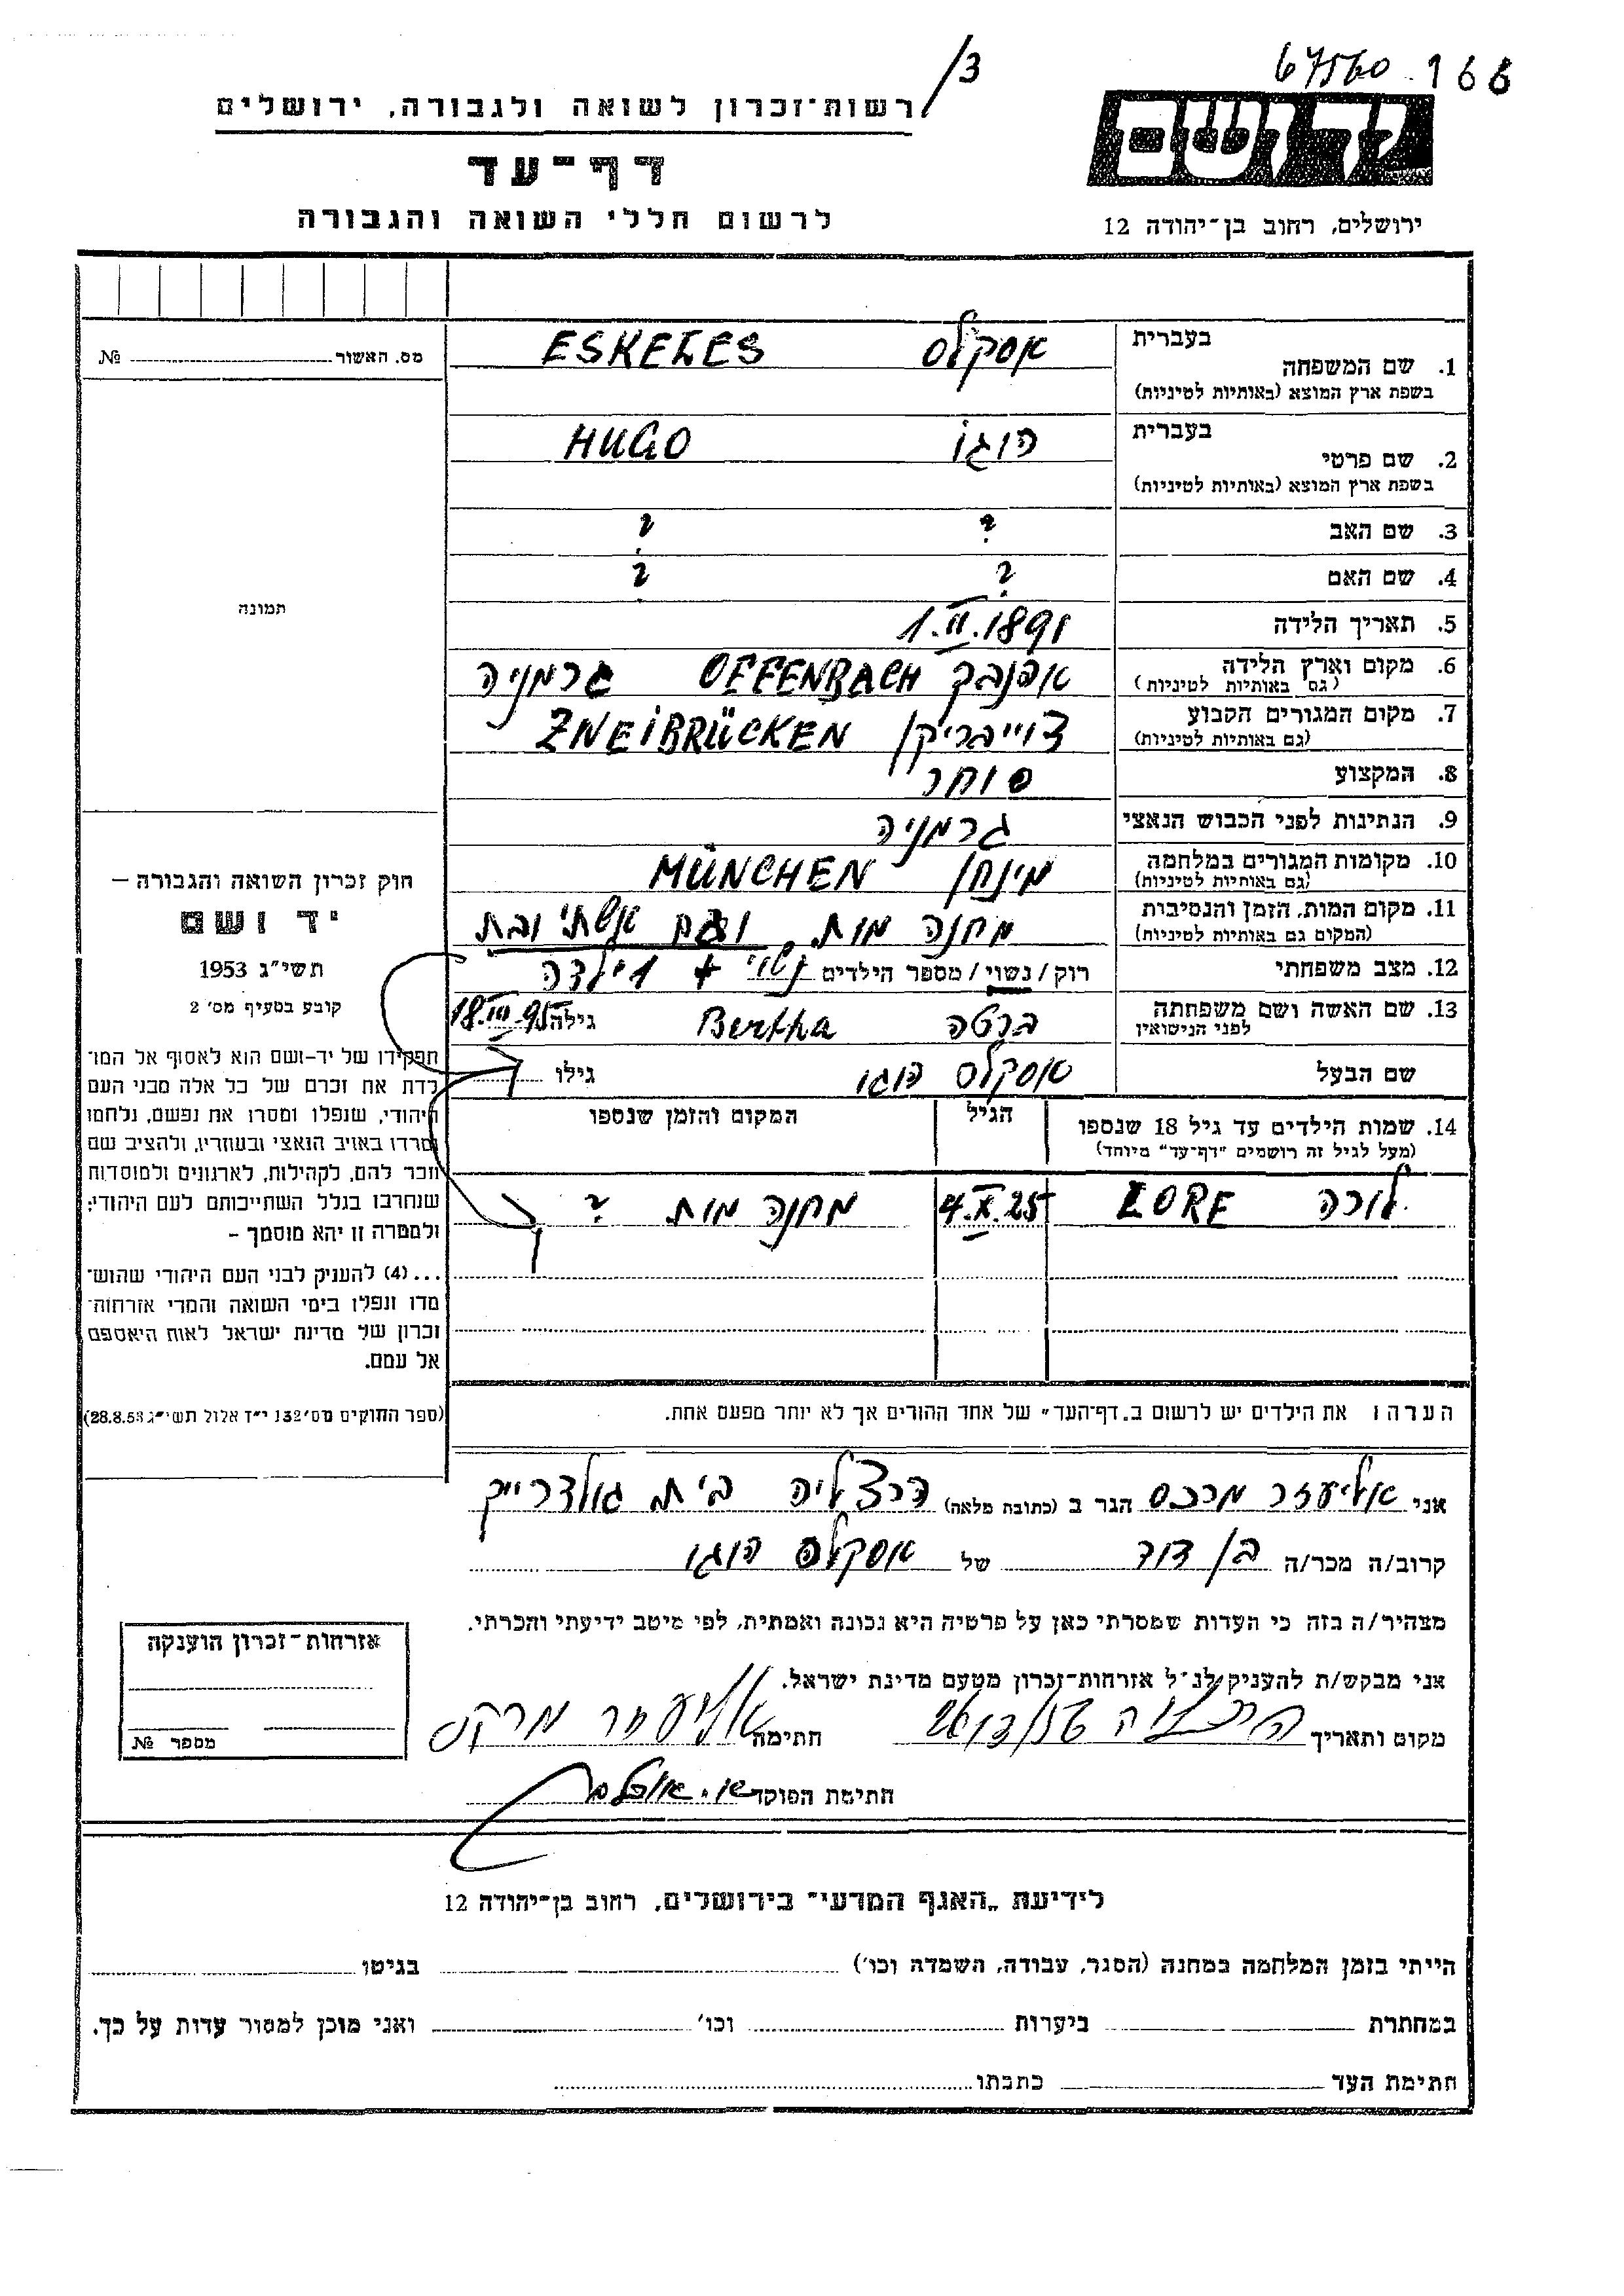 67560 166
/3
ידושם
רשות־זכרון לשואה ולגבורה, ירושלים
דף־עד
לרשום חללי השואה והגבורה
ירושלים, רחוב בן־יהודה 12
מס. האשור № 
1. שם המשפחה בעברית אסקלס ESKELES
בשפת ארץ המוצא (באותיות לטיניות)
2. שם פרטי בעברית הוגו HUGO
בשפת ארץ המוצא (באותיות לטיניות)
3. שם האב ? ?
4. שם האם ? ?
5. תאריך הלידה 1.II.1891
6. מקום וארץ הלידה (גם באותיות לטיניות) אפנבך OFFENBACH גרמניה
7. מקום המגורים הקבוע (גם באותיות לטיניות) צוייבריקן ZWEIBRÜCKEN
8. המקצוע סוחר
9. הנתינות לפני הכבוש הנאצי גרמניה
10. מקומות המגורים במלחמה (גם באותיות לטיניות) מינחן MÜNCHEN
11. מקום המות, הזמן והנסיבות (המקום גם באותיות לטיניות) מחנה מות, וגם אשתי ובת
12. מצב משפחתי רוק / נשוי / מספר הילדים נשוי + 1 ילדה
13. שם האשה ושם משפחתה לפני הנישואין ברטה Bertha גילה 18.III.95
שם הבעל אסקלס הוגו גילו
14. שמות הילדים עד גיל 18 שנספו הגיל המקום והזמן שנספו
(מעל לגיל זה רושמים "דף־עד" מיוחד)
לורה LORE 4.X.25 מחנה מות ?
תמונה
חוק זכרון השואה והגבורה –
יד ושם
תשי"ג 1953
קובע בסעיף מס' 2
תפקידו של יד–ושם הוא לאסוף אל המו־
לדת את זכרם של כל אלה מבני העם
היהודי, שנפלו ומסרו את נפשם, נלחמו
ומרדו באויב הנאצי ובעוזריו, ולהציב שם
וזכר להם, לקהילות, לארגונים ולמוסדות
שנחרבו בגלל השתייכותם לעם היהודי;
ולמטרה זו יהא מוסמך –
...(4) להעניק לבני העם היהודי שהוש־
מדו ונפלו בימי השואה והמרי אזרחות־
זכרון של מדינת ישראל לאות היאספם
אל עמם.
(ספר החוקים מס' 132 י"ז אלול תשי"ג 28.8.53)
הערה: את הילדים יש לרשום ב"דף־העד" של אחד ההורים אך לא יותר מפעם אחת.
אני אליעזר מרכס הגר ב (כתובת מלאה) הרצליה בית גולדרייך
קרוב/ה מכר/ה בן דוד של אסקלס הוגו
מצהיר/ה בזה כי העדות שמסרתי כאן על פרטיה היא נכונה ואמתית, לפי מיטב ידיעתי והכרתי.
אני מבקש/ת להעניק לנ"ל אזרחות־זכרון מטעם מדינת ישראל.
מקום ותאריך הרצליה חתימה אליעזר מרקס
חתימת הפוקד
אזרחות־זכרון הוענקה
מספר №
לידיעת "האגף המדעי" בירושלים, רחוב בן־יהודה 12
הייתי בזמן המלחמה במחנה (הסגר, עבודה, השמדה וכו') בגיטו
במחתרת ביערות וכו' ואני מוכן למסור עדות על כך.
חתימת העד כתבתו